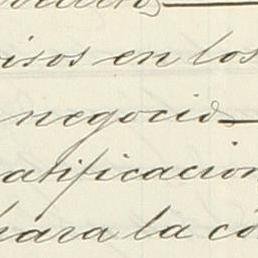 visos en los
negocio
atificacion
para la có